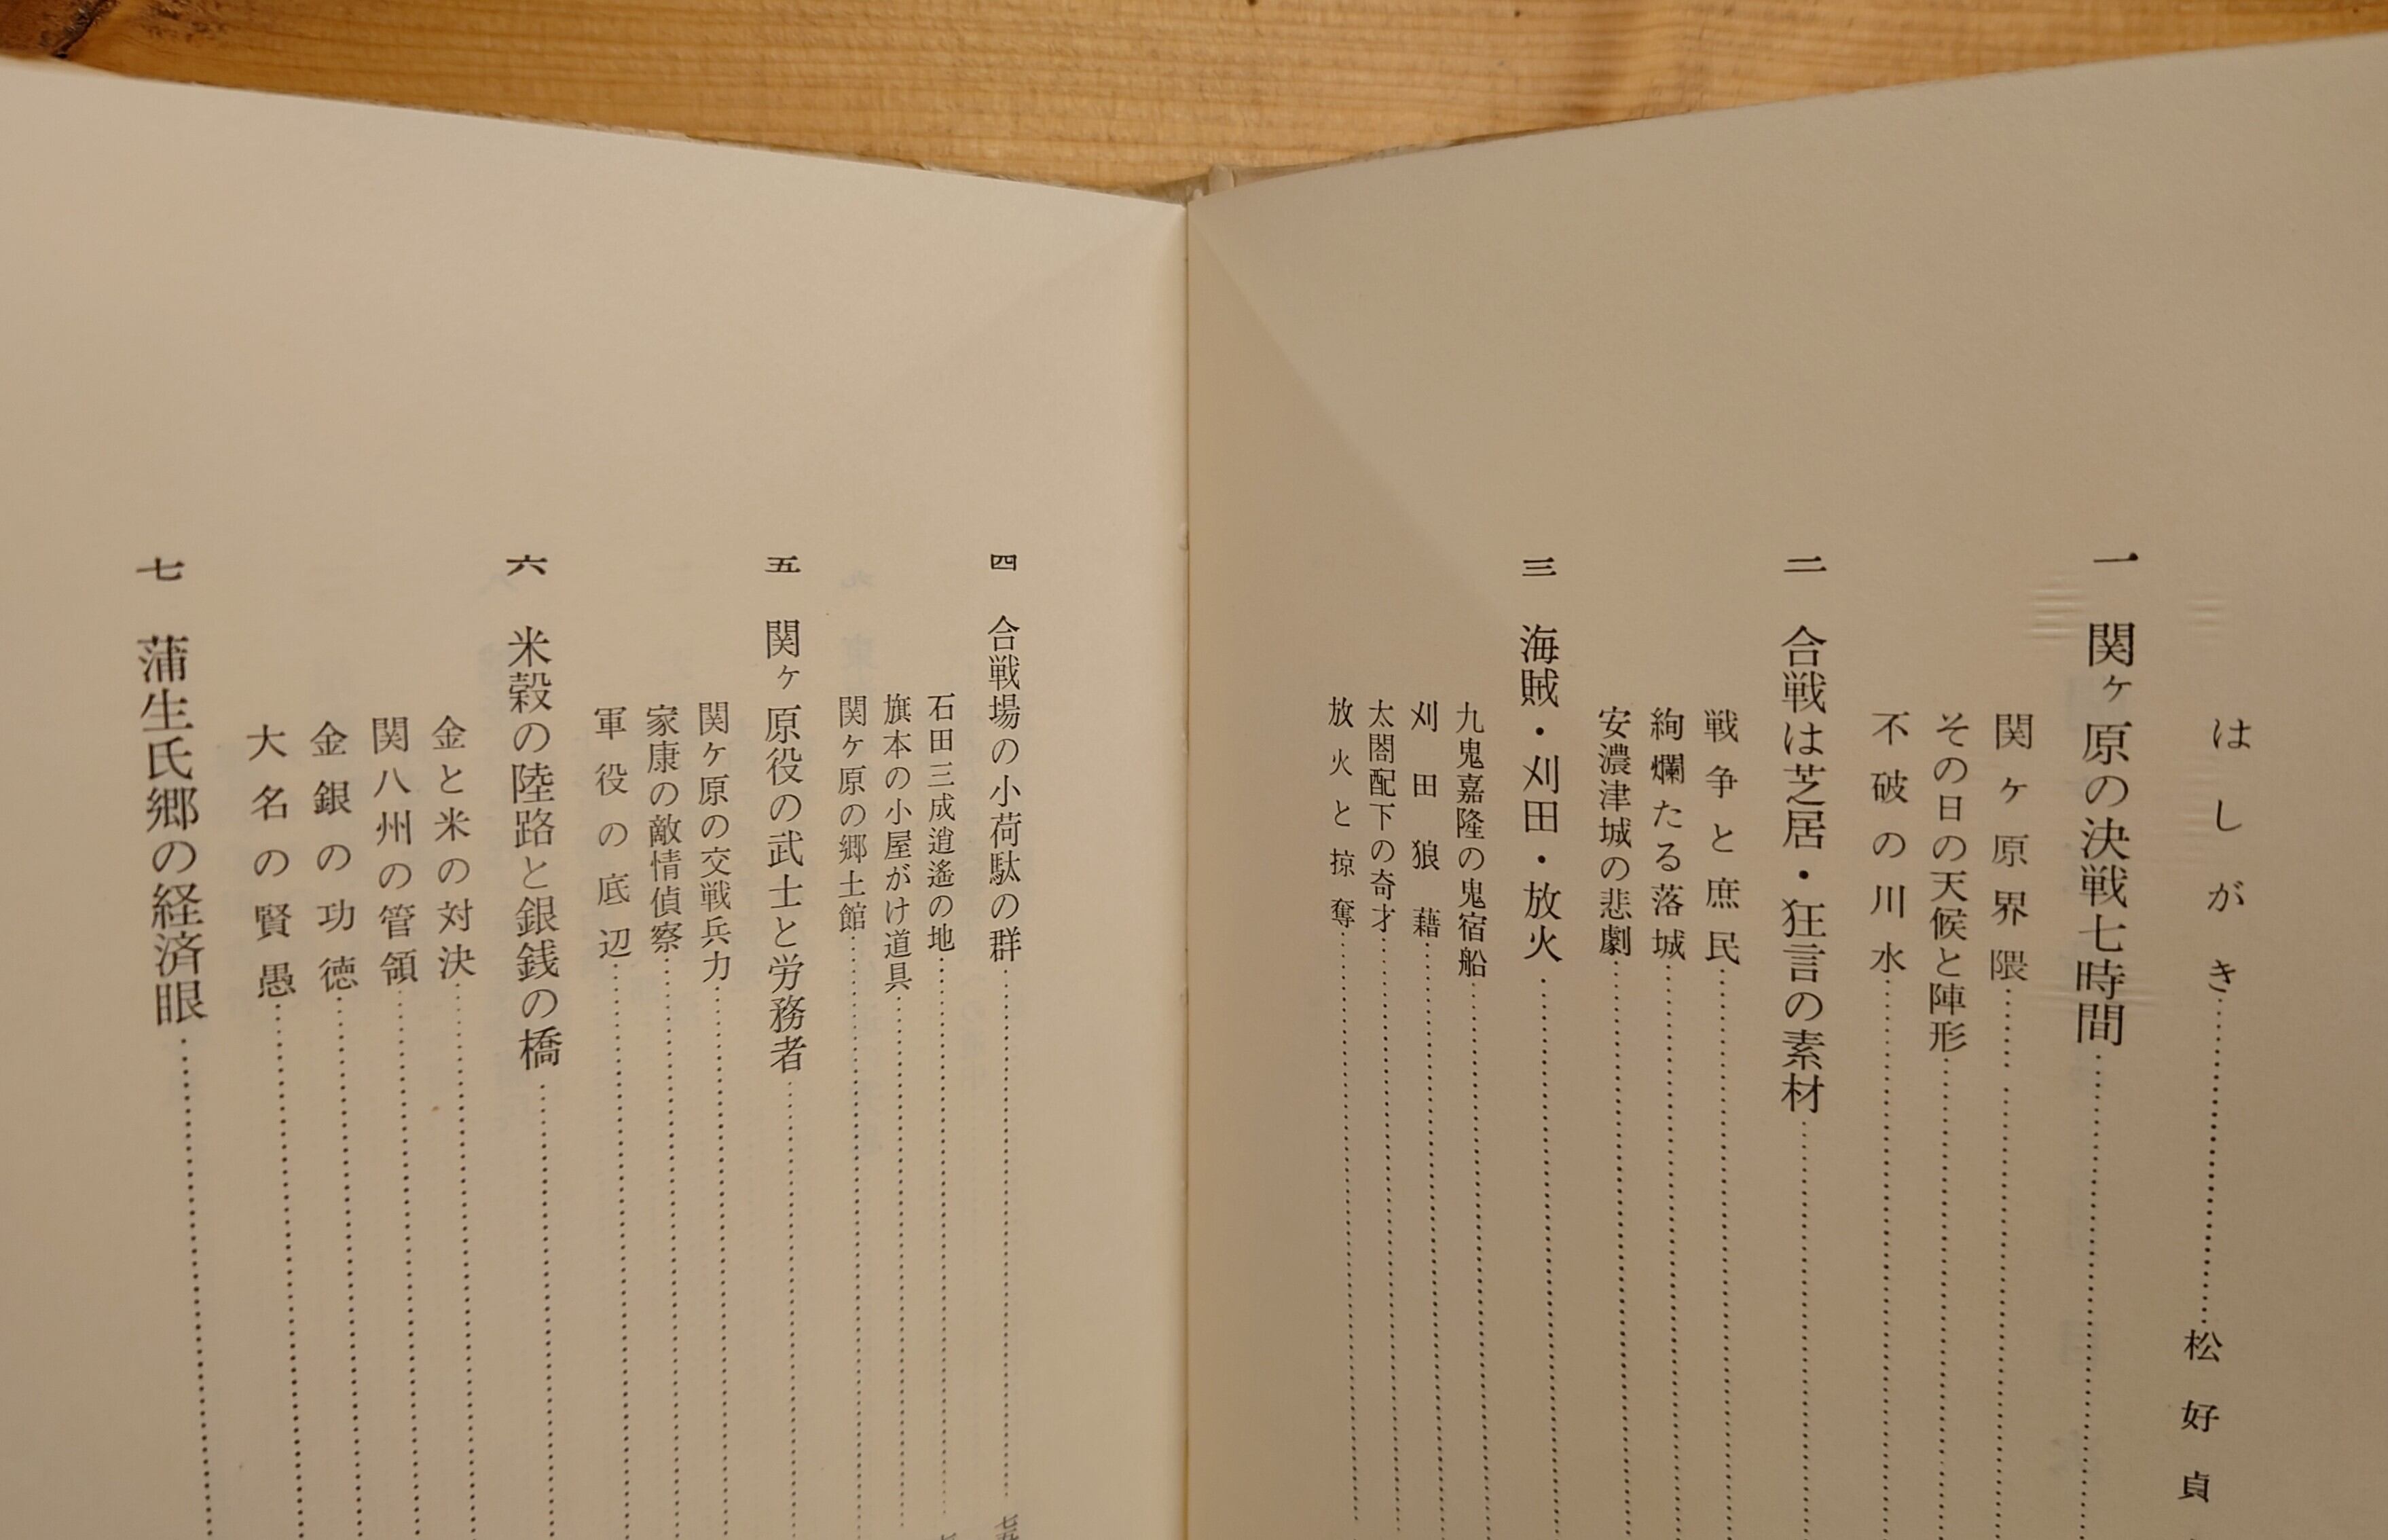 はしがき……松好貞
一 関ヶ原の決戦七時間
関ヶ原界隈
その日の天候と陣形
不破の川水
二 合戦は芝居・狂言の素材
戦争と庶民
絢爛たる落城
安濃津城の悲劇
三 海賊・刈田・放火
九鬼嘉隆の鬼宿船
刈田狼藉
太閤配下の奇才
放火と掠奪
四 合戦場の小荷駄の群
石田三成逍遙の地
旗本の小屋がけ道具
関ヶ原の郷土館
五 関ヶ原役の武士と労務者
関ヶ原の交戦兵力
家康の敵情偵察
軍役の底辺
六 米穀の陸路と銀銭の橋
金と米の対決
関八州の管領
金銀の功徳
大名の賢愚
七 蒲生氏郷の経済眼